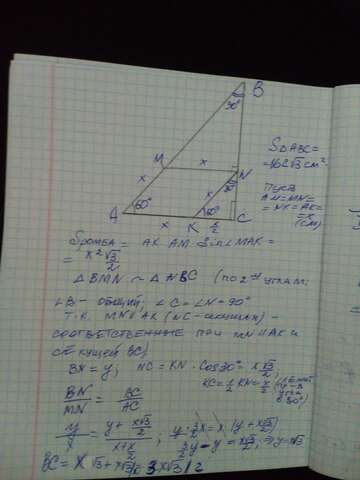 B
30°
M
x
N
x
x
30°
A
60°
x
K
60°
x/2
C
S△ABC=
=16√3 см²
Пусть
AM=MN=
=NK=AK=
=x
(см)
Sромба = AK · AM · Sin∠MAK =
= x²√3/2
△BMN ~ △ABC (по 2ум углам:
∠B - общий; ∠C = ∠N = 90°
т.к. MN || AK (NC-секущая) -
соответственные при MN || AK и
секущей BC)
BX = y; NC = KN · Cos30° = x√3/2;
KC = 1/2 KN = x/2 (лежит
30°)
BN/MN = BC/AC
y/x = (y + x√3/2)/(x + x/2); y · 3x/2 = x · (y + x√3/2)
3/2 y - y = x√3/2; ⇒ y = x√3
BC = x√3 + x√3/2 = 3x√3/2